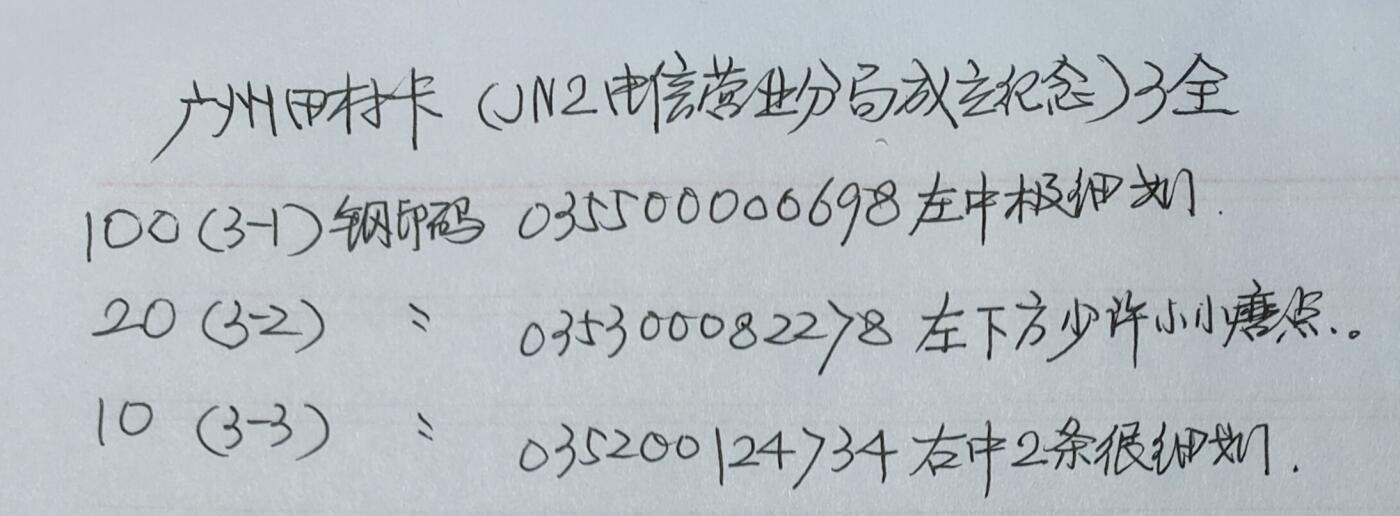 广州田村卡(JN2电信营业分局成立纪念)3全
100(3-1)钢印码 035500000698左中极细划.
20(3-2) 〃 035300082278左下方少许小小磨点.。
10(3-3) 〃 035200124734右中2条很细划.